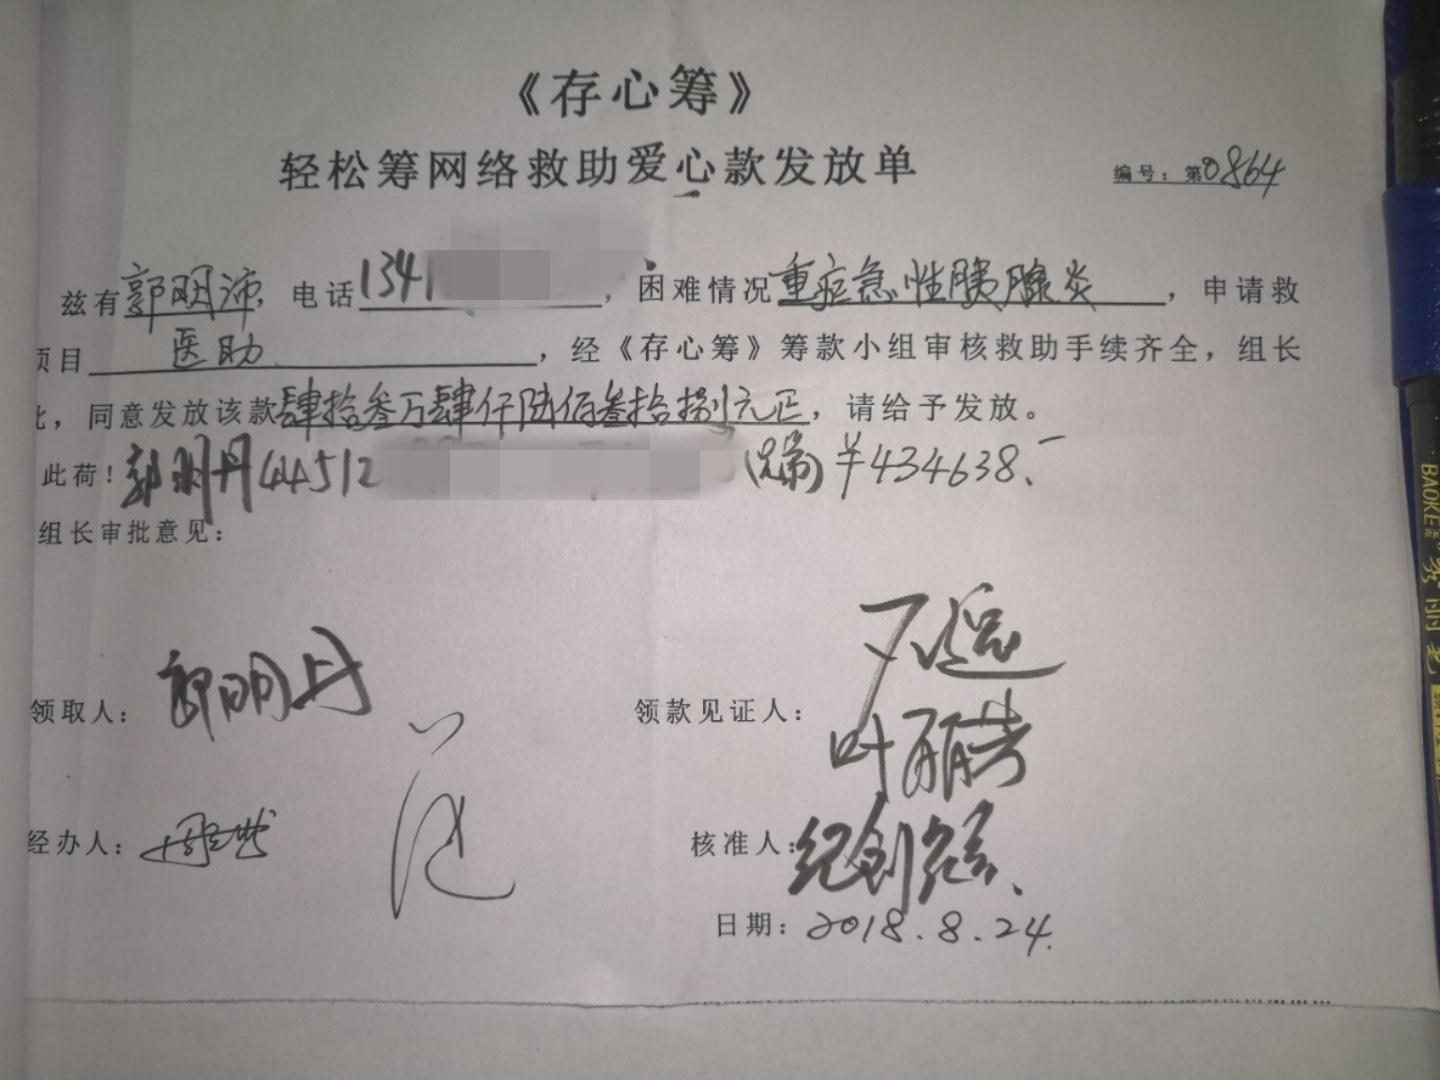 《存心筹》
轻松筹网络救助爱心款发放单
编号：第0864
兹有郭明沛，电话1341，困难情况重症急性胰腺炎，申请救
项目医助，经《存心筹》筹款小组审核救助手续齐全，组长
，同意发放该款肆拾叁万肆仟陆佰叁拾捌元正，请给予发放。
此荷！郭明丹44512（兄弟）￥434638.-
组长审批意见：
领取人：郭明丹
领款见证人：
叶丽芸
经办人：
核准人：纪创
日期：2018.8.24.
BAOKE